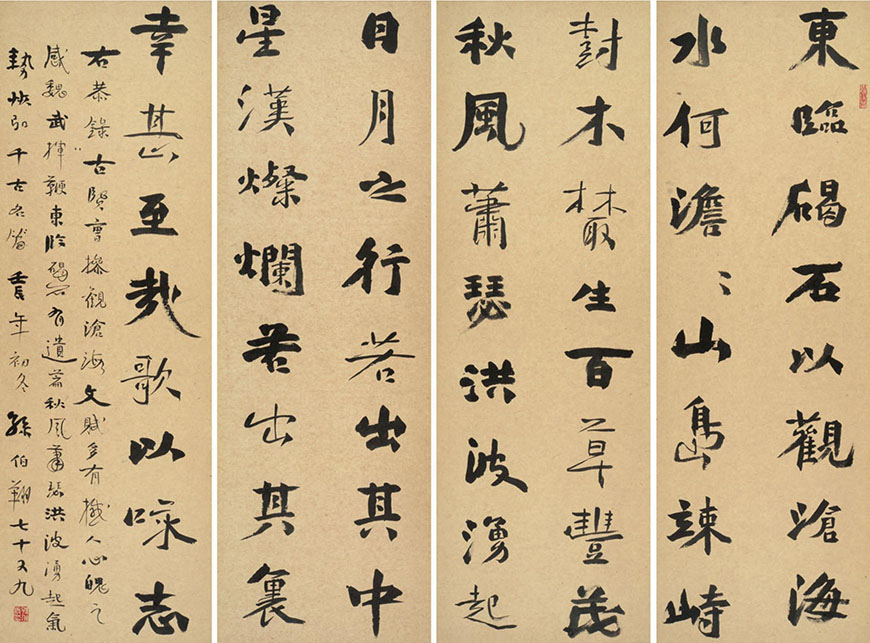 東臨碣石以觀滄海
水何澹〻山島竦峙
樹木叢生百草豐茂
秋風蕭瑟洪波湧起
日月之行若出其中
星漢燦爛若出其裏
幸甚至哉歌以咏志
右恭錄古賢曹操觀滄海文賦多有撼人心魄之
感魏武揮鞭東臨碣石有遺篇秋風蕭瑟洪波湧起氣
勢恢弘千古名篇壬辰年初冬孫伯翔七十又九